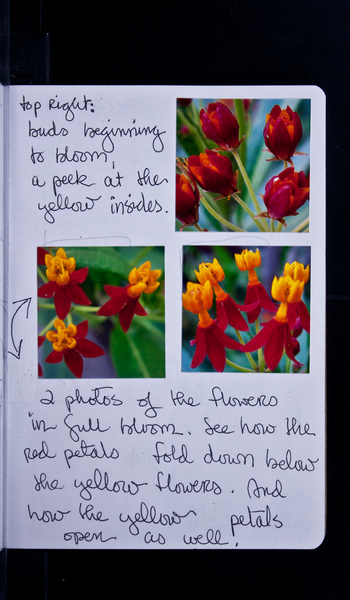 top Right:
buds beginning
to bloom,
a peek at the
yellow insides.
2 photos of the flowers
in full bloom. See how the
red petals fold down below
the yellow flowers. And
how the yellow petals
open as well.